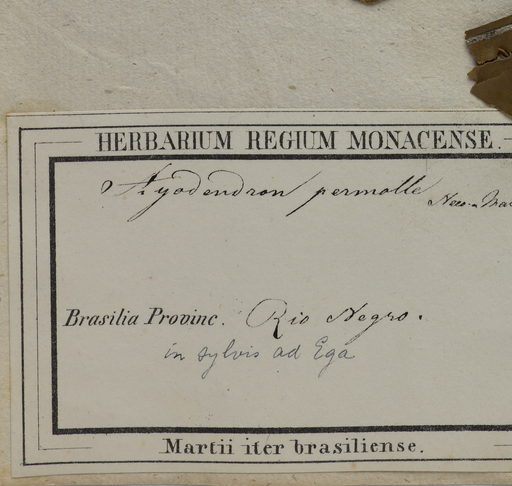 HERBARIUM REGIUM MONACENSE.
permolle
Brasilia Provinc. Rio Negro.
in sylvis ad Ega
Martii iter brasiliense.